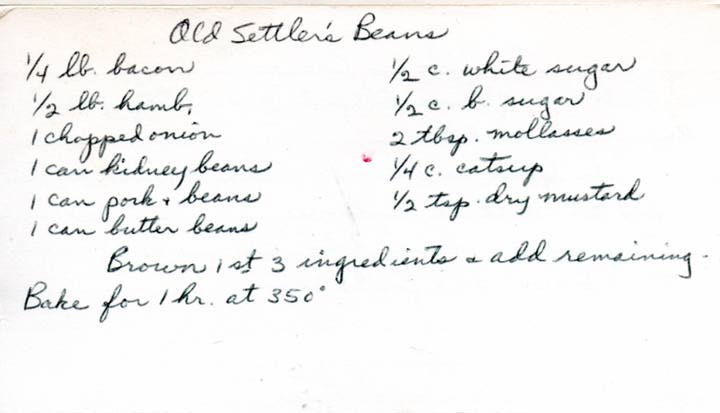 Old Settler's Beans
1/4 lb. bacon
1/2 lb. hamb.
1 chopped onion
1 can kidney beans
1 can pork & beans
1 can butter beans
1/2 c. white sugar
1/2 c. b. sugar
2 tbsp. mollasses
1/4 c. catsup
1/2 tsp. dry mustard
Brown 1st 3 ingredients & add remaining.
Bake for 1 hr. at 350°